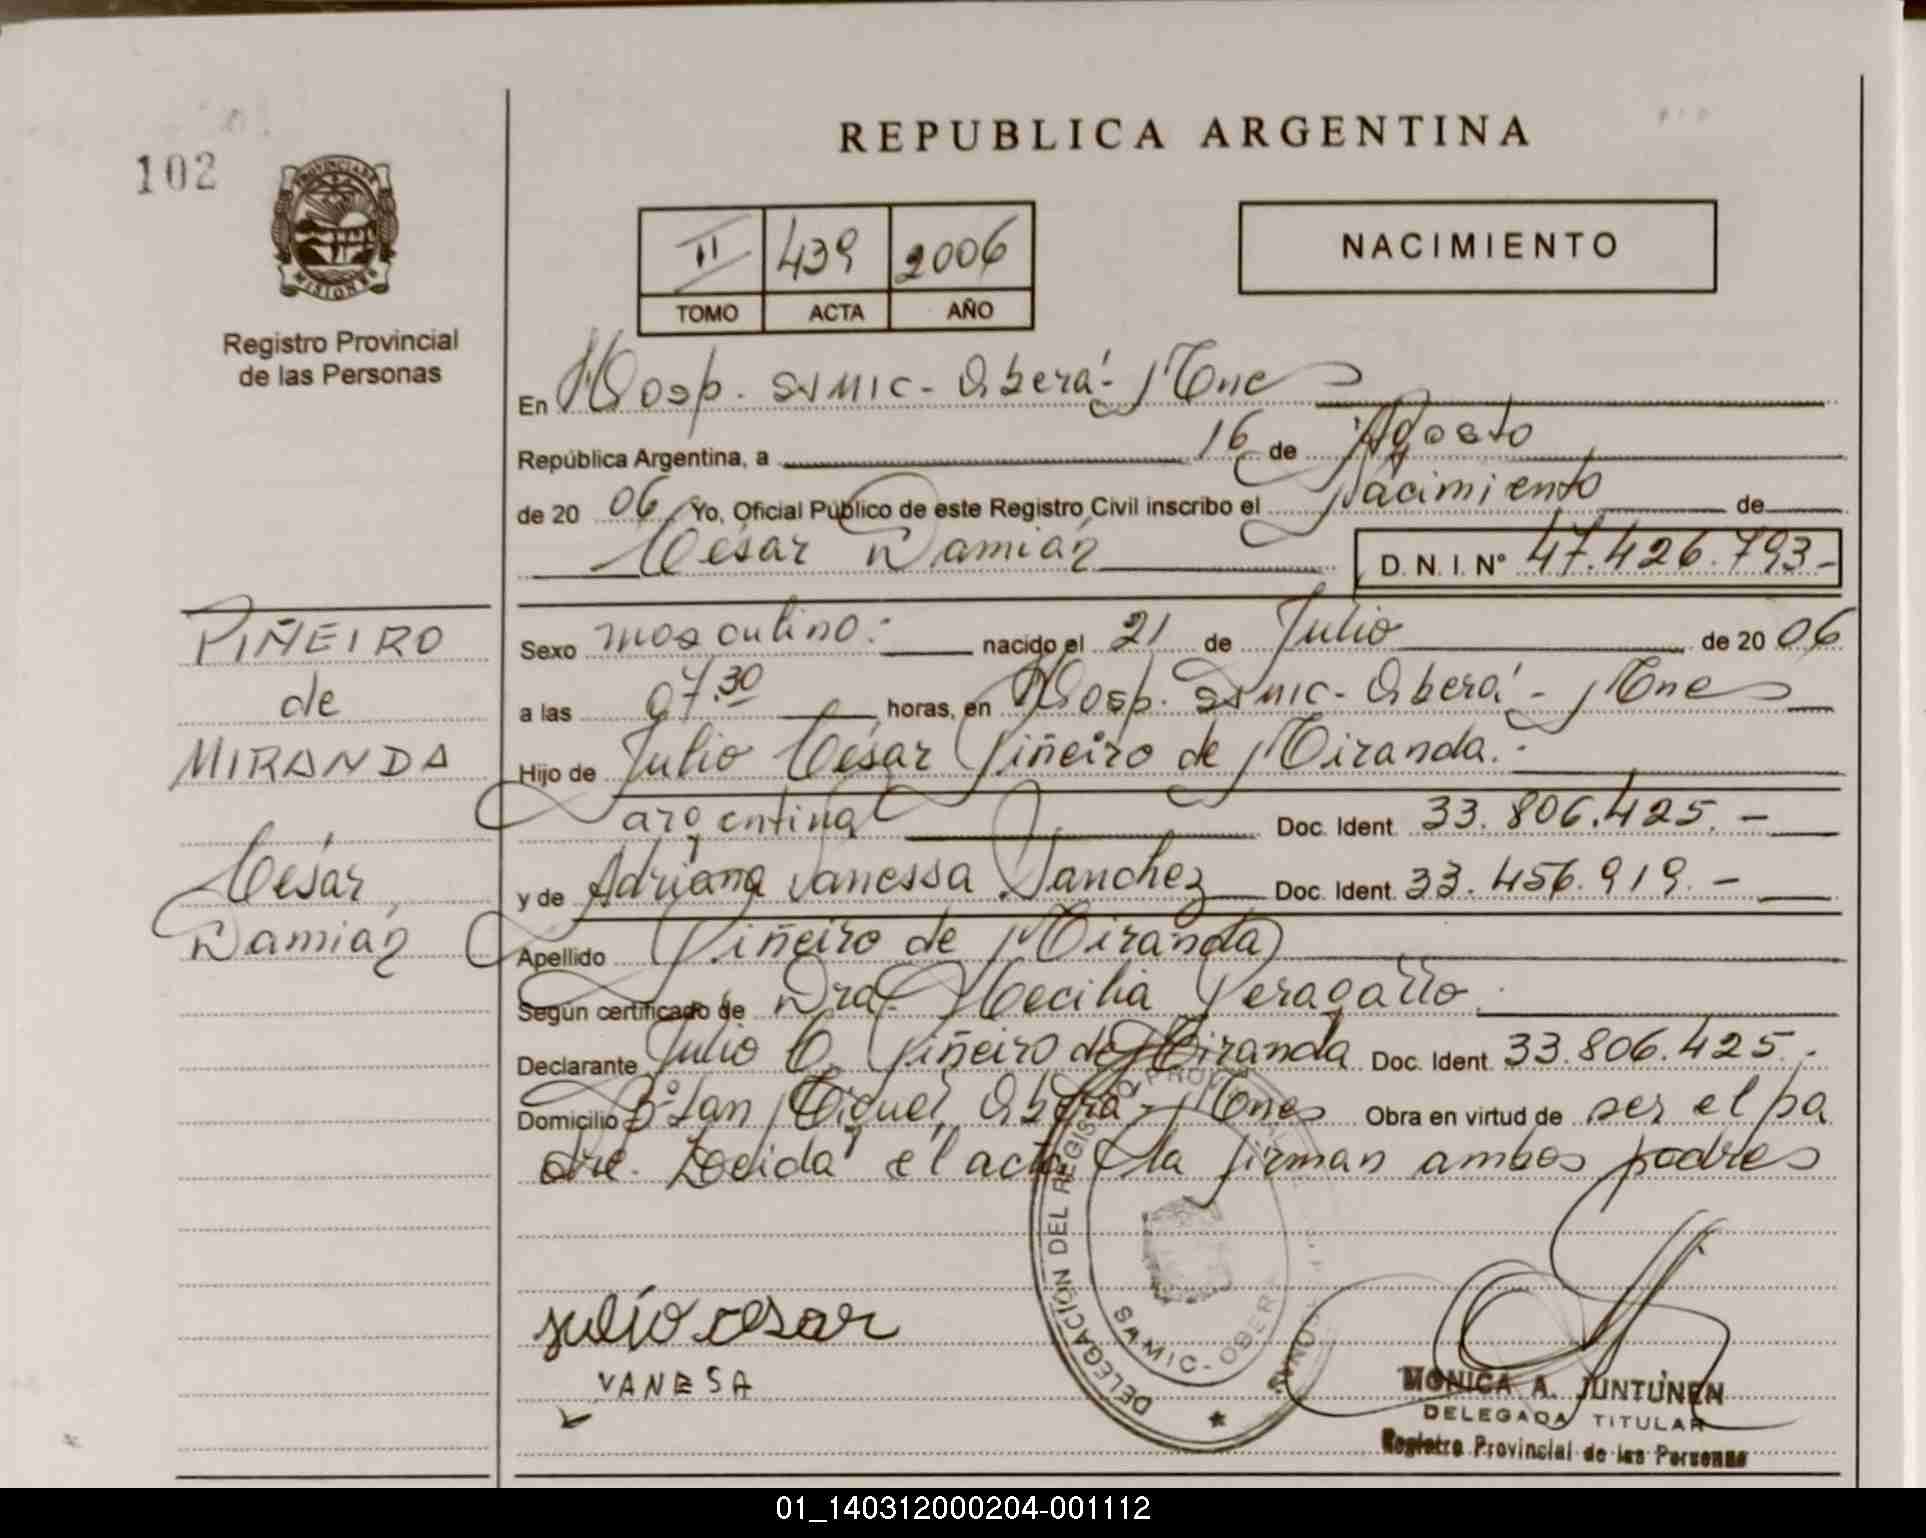 102
PROVINCIA DE
MISIONES
Registro Provincial
de las Personas
REPUBLICA ARGENTINA
II 439 2006
TOMO ACTA AÑO
NACIMIENTO
En Hosp. SAMIC - Oberá - Mnes
República Argentina, a 16 de Agosto
de 20 06 Yo, Oficial Público de este Registro Civil inscribo el Nacimiento de
César Damián D. N. I. N° 47.426.793.-
PIÑEIRO
de
MIRANDA
César
Damián
Sexo masculino.- nacido el 21 de Julio de 20 06
a las 07.30 horas, en Hosp. SAMIC - Oberá - Mnes
Hijo de Julio César Piñeiro de Miranda.-
argentina Doc. Ident. 33.806.425.-
y de Adriana Vanessa Sanchez Doc. Ident. 33.456.919.-
Apellido Piñeiro de Miranda
Según certificado de Dra. Cecilia Peragallo
Declarante Julio C. Piñeiro de Miranda Doc. Ident. 33.806.425.-
Domicilio B° San Miguel, Oberá - Mnes Obra en virtud de ser el pa
dre. Leida el acta la firman ambos padres
julio cesar
VANESA
DELEGACIÓN DEL REGISTRO PROVINCIAL
SAMIC - OBERÁ
MONICA A. JUNTUNEN
DELEGADA TITULAR
Registro Provincial de las Personas
01_140312000204-001112